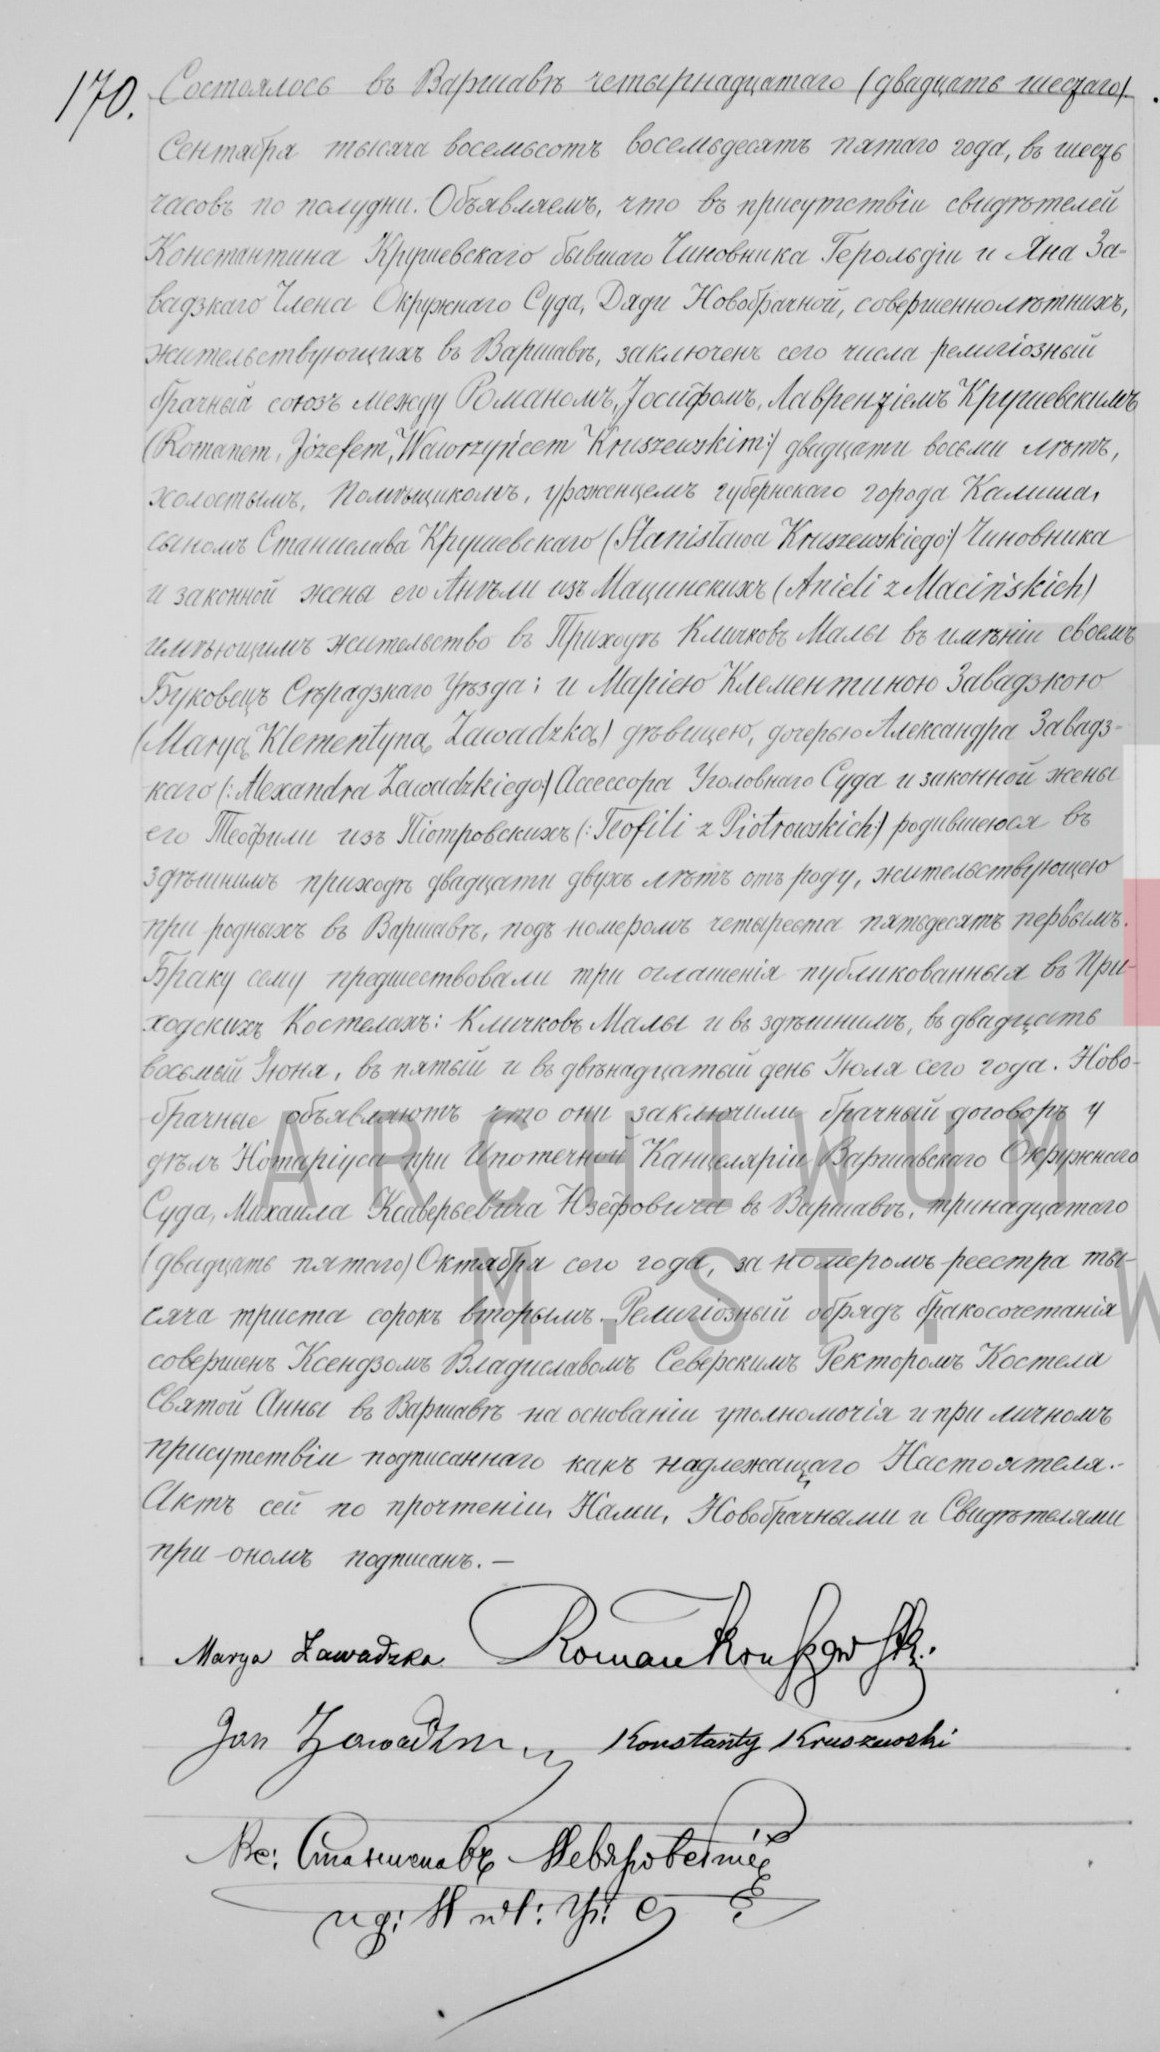 170. Состоялось въ Варшавѣ четырнадцатаго (двадцать шестаго)
Сентября тысяча восемьсотъ восемьдесятъ пятаго года, въ шесть
часовъ по полудни. Объявляемъ, что въ присутствіи свидѣтелей
Константина Крушевскаго бывшаго Чиновника Герольдіи и Яна За-
вадзкаго Члена Окружнаго Суда, Дяди Новобрачной, совершеннолѣтнихъ,
жительствующихъ въ Варшавѣ, заключенъ сего числа религіозный
брачный союзъ между Романомъ, Іосифомъ, Лаврентіемъ Крушевскимъ
(Romanem, Józefem, Wawrzyńcem Kruszewskim:) двадцати восьми лѣтъ,
холостымъ, Помѣщикомъ, уроженцемъ губернскаго города Калиша,
сыномъ Станислава Крушевскаго (Stanisława Kruszewskiego:) Чиновника
и законной жены его Анѣли изъ Мацинскихъ (Anieli z Macińskich)
имѣющимъ жительство въ Приходѣ Кличковъ Малы въ имѣніи своемъ
Буковецъ Сѣрадзкаго Уѣзда; и Маріею Клементиною Завадзкою
(Maryą Klementyną Zawadzką) дѣвицею, дочерью Александра Завадз-
каго (: Alexandra Zawadzkiego:) Ассессора Уголовнаго Суда и законной жены
его Теофили изъ Піотровскихъ (: Teofili z Piotrowskich:) родившеюся въ
здѣшнимъ приходѣ двадцати двухъ лѣтъ отъ роду, жительствующею
при родныхъ въ Варшавѣ, подъ номеромъ четыреста пятьдесятъ первымъ.
Браку сему предшествовали три оглашенія публикованныя въ При-
ходскихъ Костелахъ: Кличковъ Малы и въ здѣшнимъ, въ двадцать
восьмый Іюня, въ пятый и въ двѣнадцатый день Іюля сего года. Ново-
брачные объявляютъ что они заключили брачный договоръ у
дѣлъ Нотаріуса при Ипотечной Канцеляріи Варшавскаго Окружнаго
Суда, Михаила Ксаверьевича Юзефовича въ Варшавѣ, тринадцатаго
(двадцать пятаго) Октября сего года, за номеромъ реестра ты-
сяча триста сорокъ вторымъ. Религіозный обрядъ бракосочетанія
совершенъ Ксендзомъ Владиславомъ Северскимъ Ректоромъ Костела
Святой Анны въ Варшавѣ на основаніи уполномочія и при личномъ
присутствіи подписаннаго какъ надлежащаго Настоятеля.-
Актъ сей по прочтеніи, Нами, Новобрачными и Свидѣтелями
при ономъ подписанъ. —
Marya Zawadzka Roman Kruszewski.
Jan Zawadzki Konstanty Kruszewski
Кс: Станиславъ
ARCHIWUM
M. ST. W